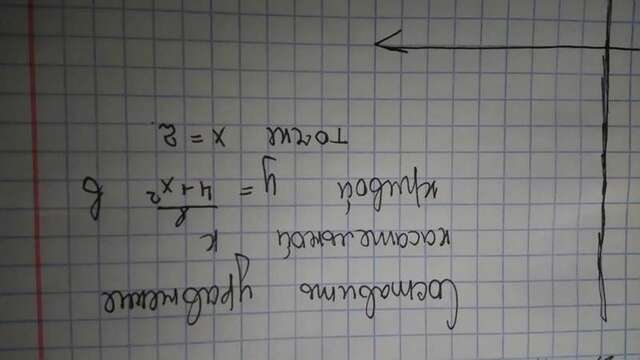 Составить уравнение
касательной к
кривой y = 8/(4+x²) в
точке x = 2.